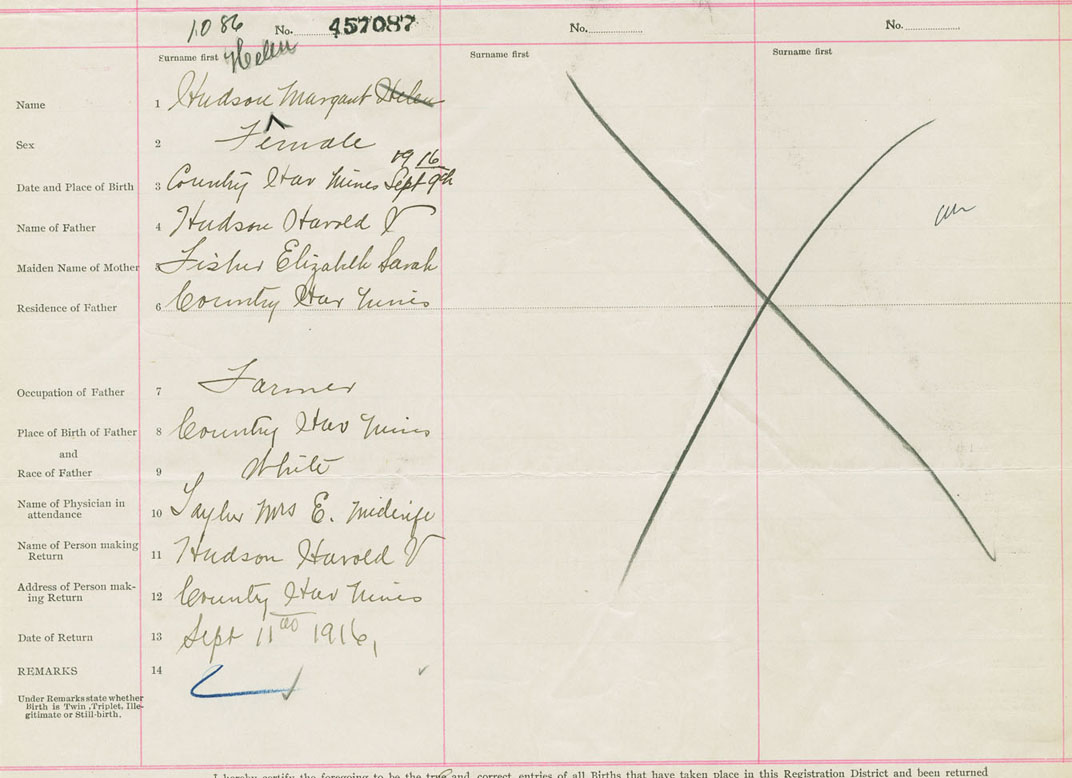 1086 No. 457087 No. No.
Surname first Helen Surname first Surname first
Name 1 Hudson Margaret Helen
Sex 2 Female
1916
Date and Place of Birth 3 Country Har Mines Sept 9th
Name of Father 4 Hudson Harold V
Maiden Name of Mother 5 Fisher Elizabeth Sarah
Residence of Father 6 Country Har Mines
Occupation of Father 7 Farmer
Place of Birth of Father 8 Country Har Mines
and
Race of Father 9 White
Name of Physician in
attendance 10 Taylor Mrs E. Midwife
Name of Person making
Return 11 Hudson Harold V
Address of Person mak-
ing Return 12 Country Har Mines
Date of Return 13 Sept 11 1916
REMARKS 14
Under Remarks state whether
Birth is Twin, Triplet, Ille-
gitimate or Still-birth.
I hereby certify the foregoing to be the true and correct entries of all Births that have taken place in this Registration District and been returned